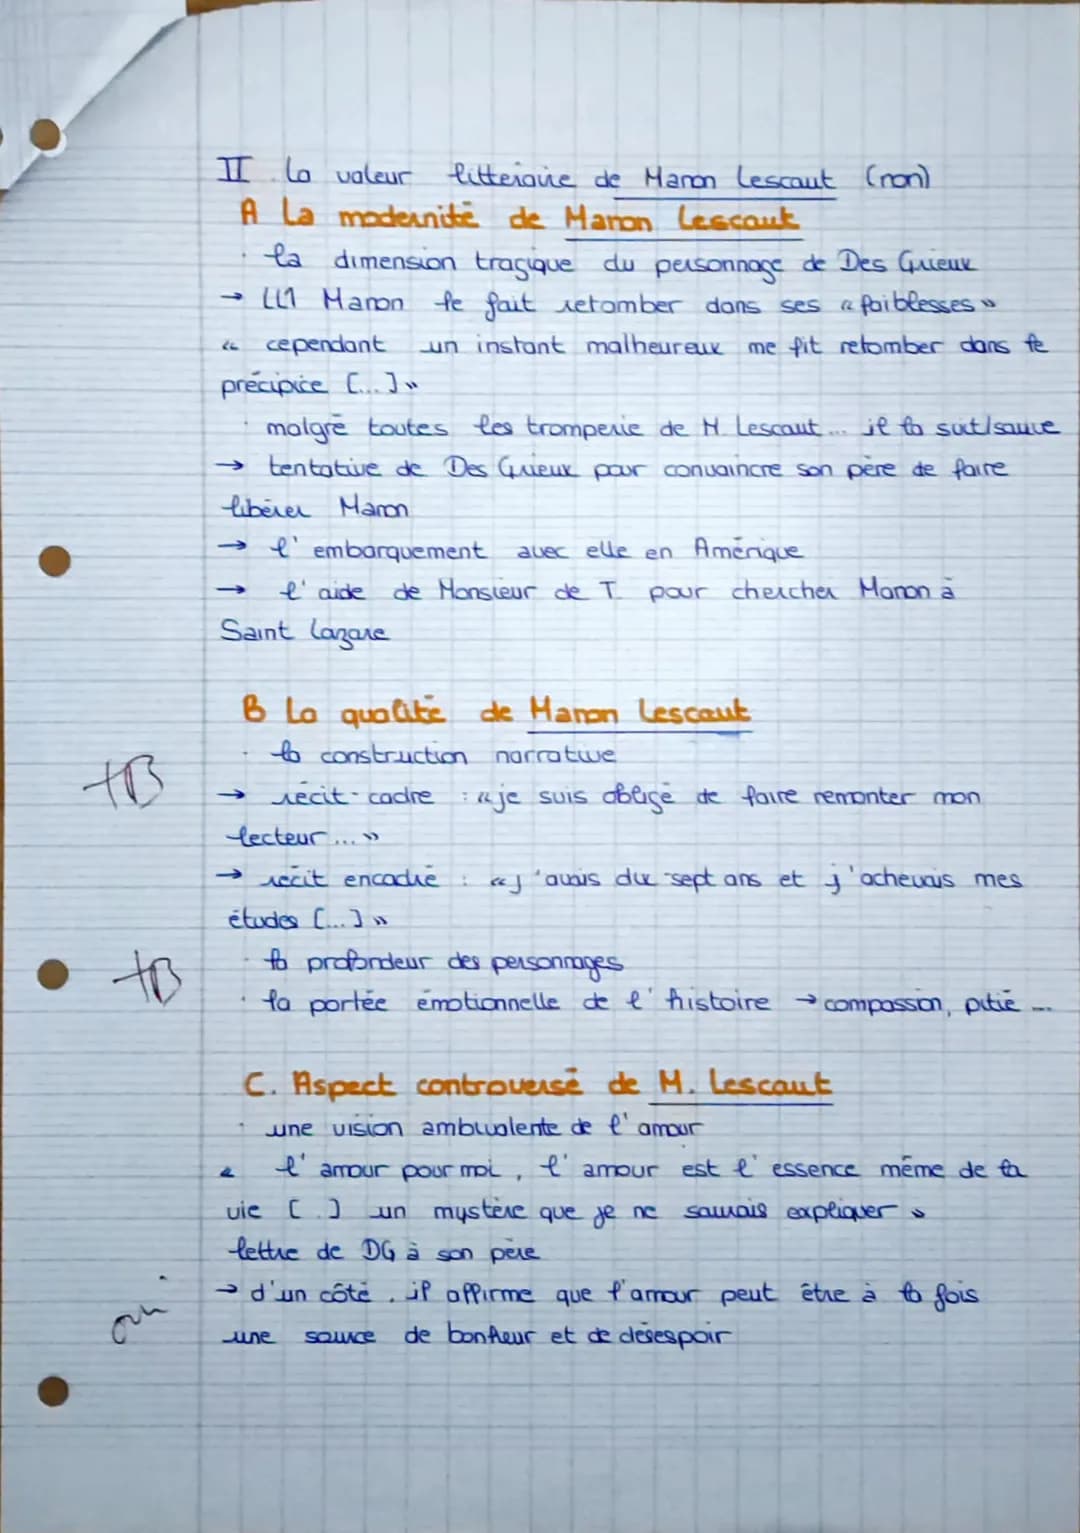 II La valeur litteraire de Manon Lescaut (non)
A La modernité de Manon Lescaut
· la dimension tragique du personnage de Des Grieux
→ LL1 Manon le fait retomber dans ses « faiblesses »
« cependant un instant malheureux me fit retomber dans le
précipice [...] »
· malgré toutes les tromperie de M. Lescaut... il la suit/sauve
→ tentative de Des Grieux pour convaincre son père de faire
libérer Manon
→ l'embarquement avec elle en Amérique
→ l'aide de Monsieur de T. pour chercher Manon à
Saint Lazare
B La qualité de Manon Lescaut
· la construction narrative
TB
→ récit-cadre : « je suis obligé de faire remonter mon
lecteur... »
→ récit encadré : « j'avais dix sept ans et j'achevais mes
études [...] »
· la profondeur des personnages
TB
· la portée émotionnelle de l'histoire → compassion, pitié ...
C. Aspect controversé de M. Lescaut
· une vision ambivalente de l'amour
« l'amour pour moi, l'amour est l'essence même de la
vie [..] un mystère que je ne saurais expliquer »
lettre de DG à son père
→ d'un côté, il affirme que l'amour peut être à la fois
oui
une source de bonheur et de désespoir